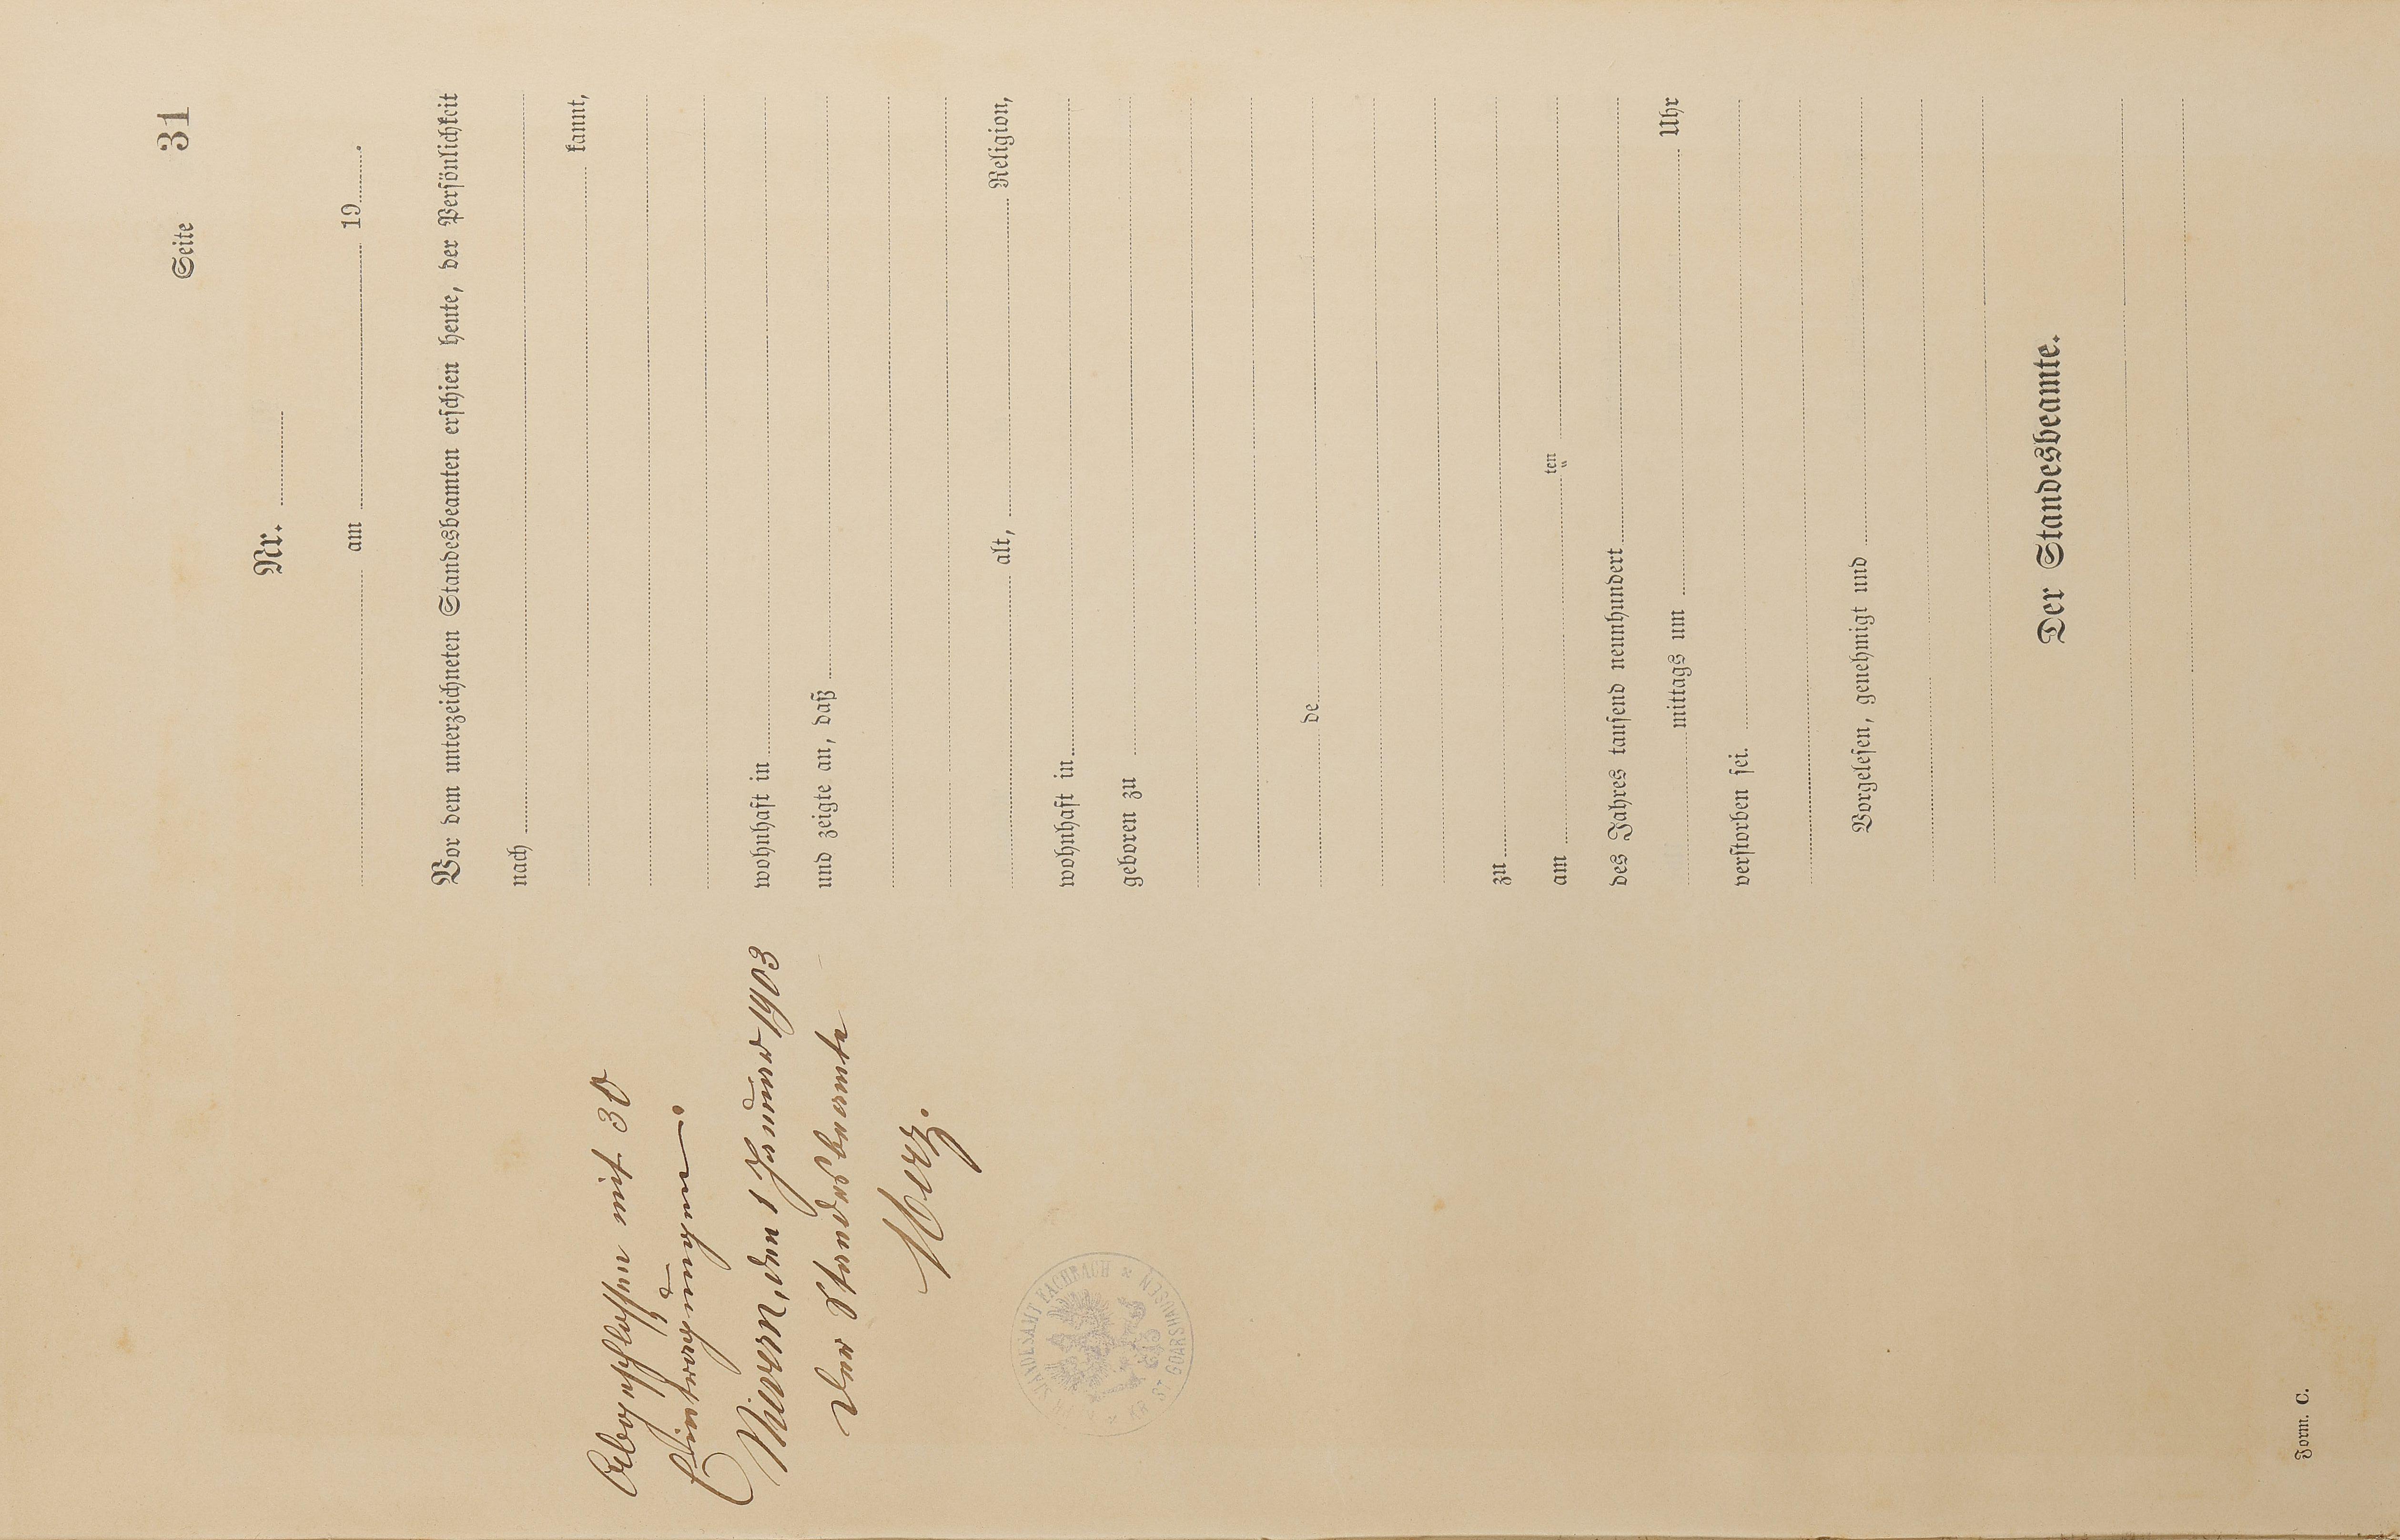 Seite 31
Nr.
am 19 .
Vor dem unterzeichneten Standesbeamten erschien heute, der Persönlichkeit
nach
kannt,
wohnhaft in
und zeigte an, daß
alt, Religion,
wohnhaft in
geboren zu
de
zu
am ten
des Jahres tausend neunhundert
mittags um Uhr
verstorben sei.
Vorgelesen, genehmigt und
Der Standesbeamte.
Abgeschlossen mit 30
Eintragungen.
Miesern, den 1 Januar 1903
Der Standesbeamte
STANDESAMT FACHBACH
KR. ST GOARSHAUSEN
Form. C.